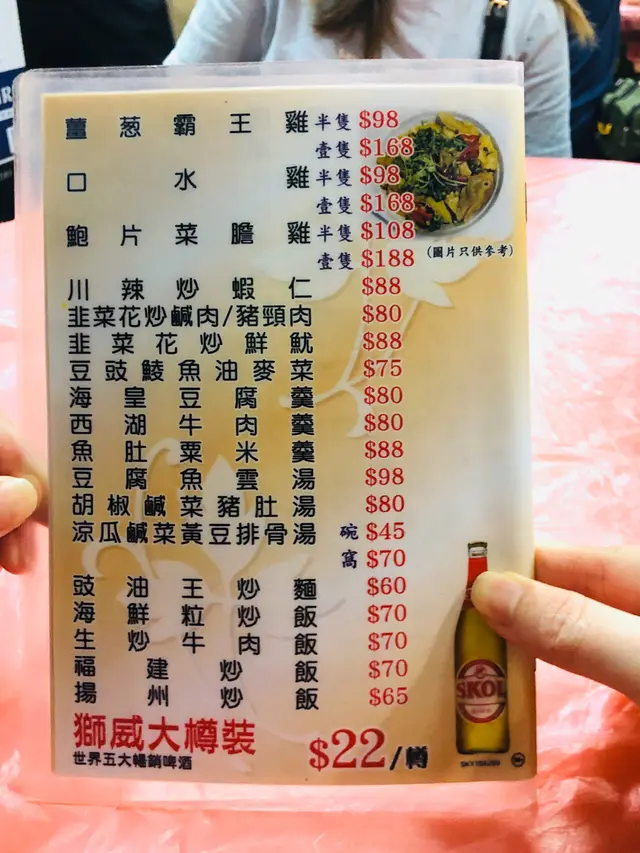 薑葱霸王雞 半隻 $98
壹隻 $168
口水雞 半隻 $98
壹隻 $168
鮑片菜膽雞 半隻 $108
壹隻 $188
(圖片只供參考)
川辣炒蝦仁 $88
韭菜花炒鹹肉/豬頸肉 $80
韭菜花炒鮮魷 $88
豆豉鯪魚油麥菜 $75
海皇豆腐羹 $80
西湖牛肉羹 $80
魚肚粟米羹 $88
豆腐魚雲湯 $98
胡椒鹹菜豬肚湯 $80
涼瓜鹹菜黃豆排骨湯 碗 $45
窩 $70
豉油王炒麵 $60
海鮮粒炒飯 $70
生炒牛肉飯 $70
福建炒飯 $70
揚州炒飯 $65
獅威大樽裝 $22/樽
世界五大暢銷啤酒
SKOL